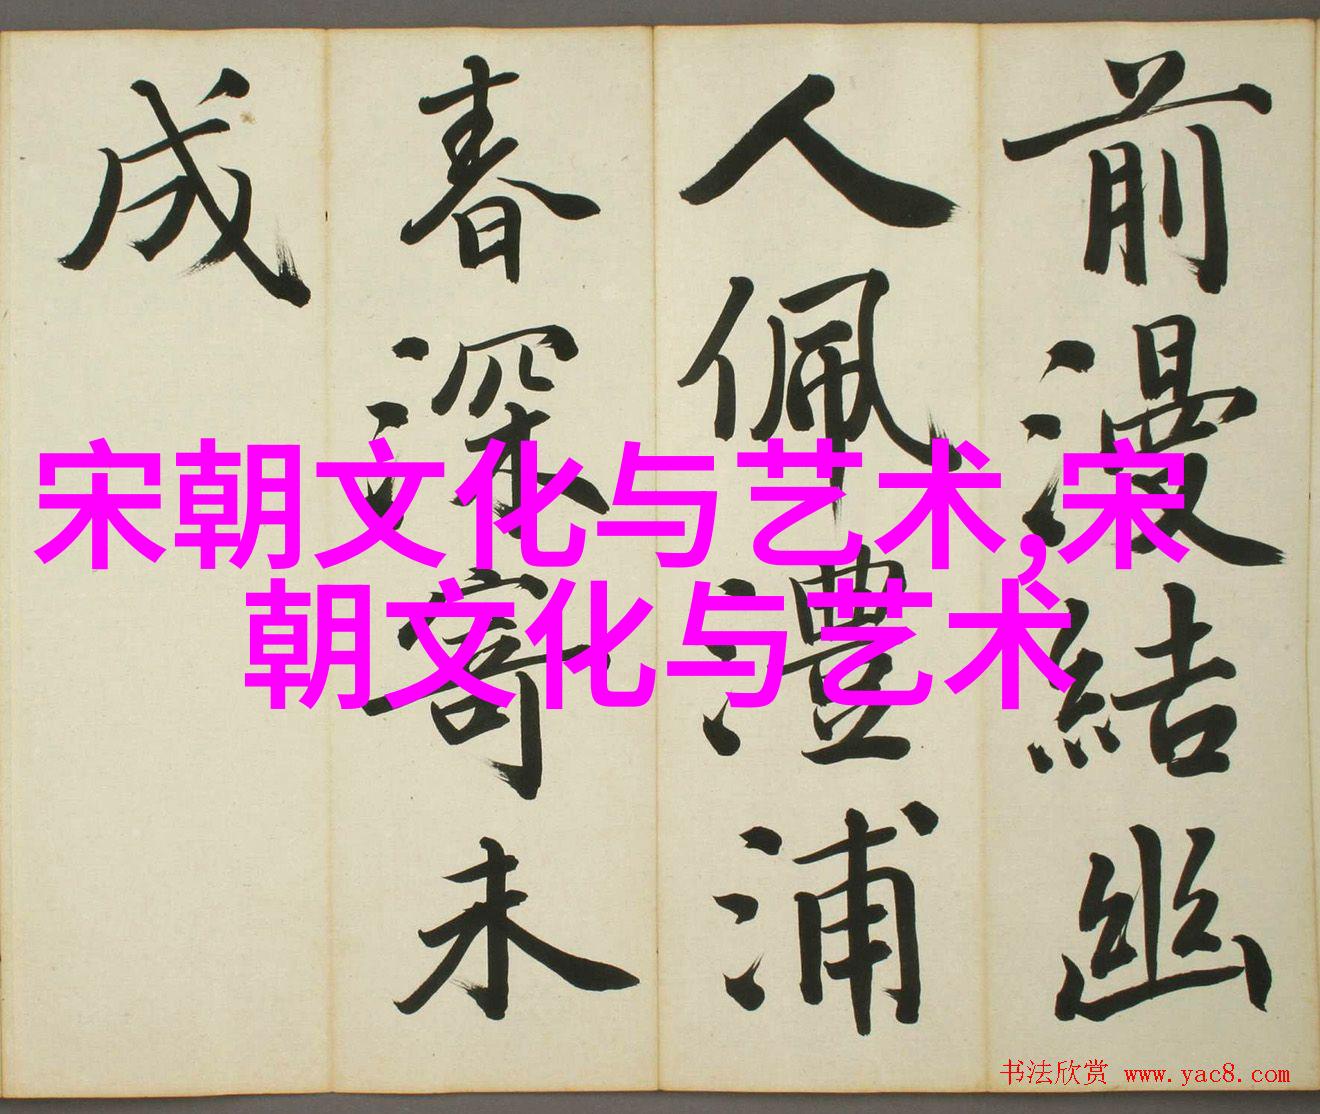 前漫結幽
人佩澧浦
春深寄未
成
宋朝文化与艺术,宋
朝文化与艺术
书法欣赏 www.yac8.com